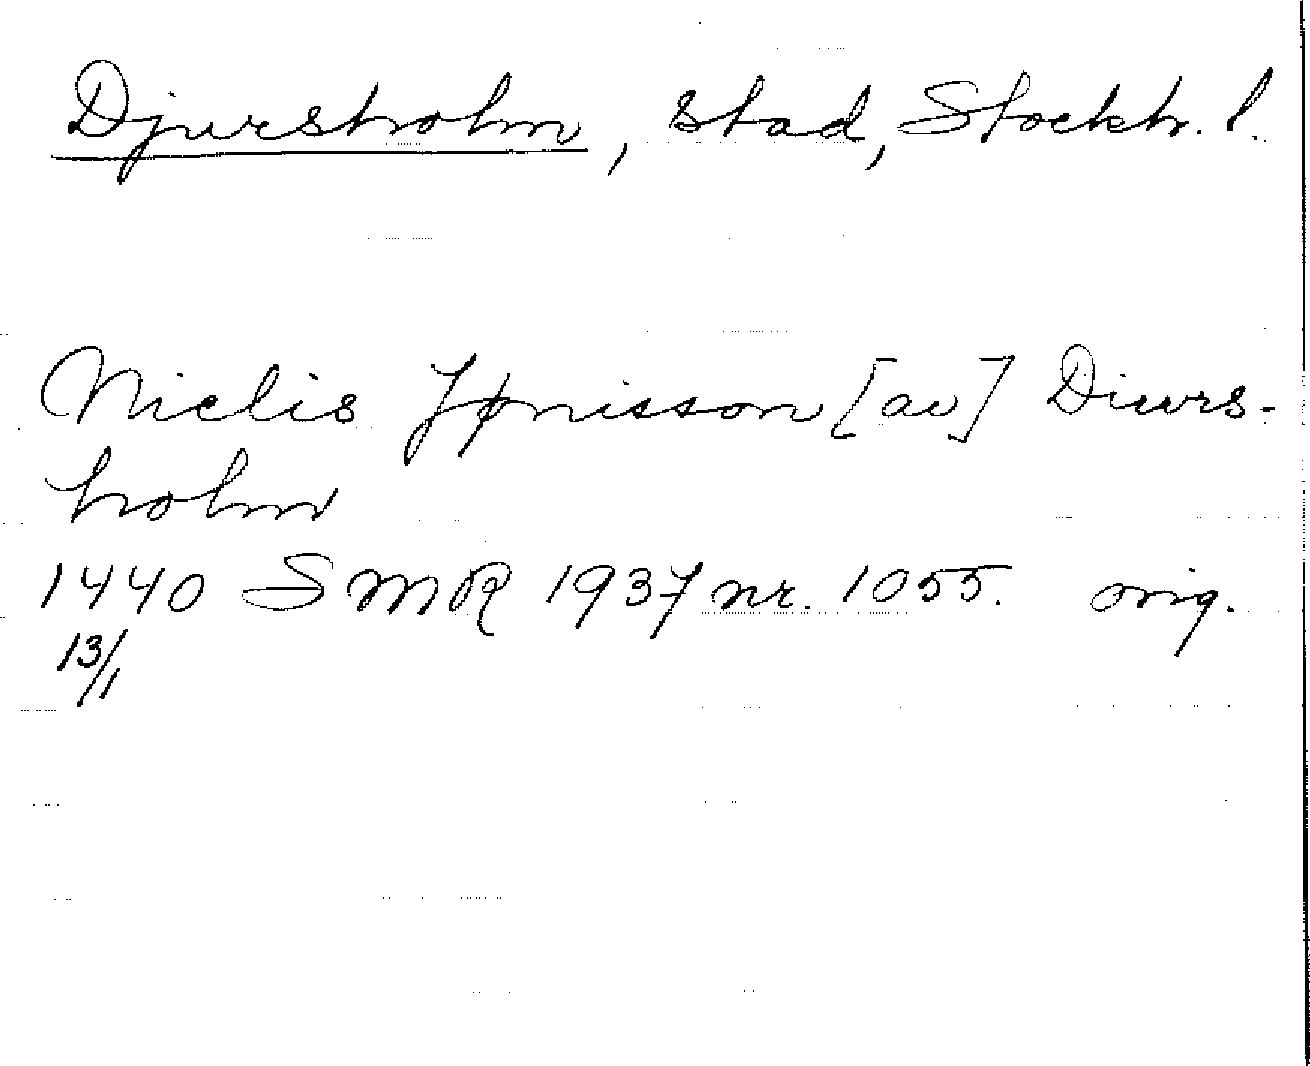 Djursholm, stad, Stockh. l.
Nielis Jønisson [av] Diurs-
holm
1440 SMR 1937 nr. 1055. orig.
13/1